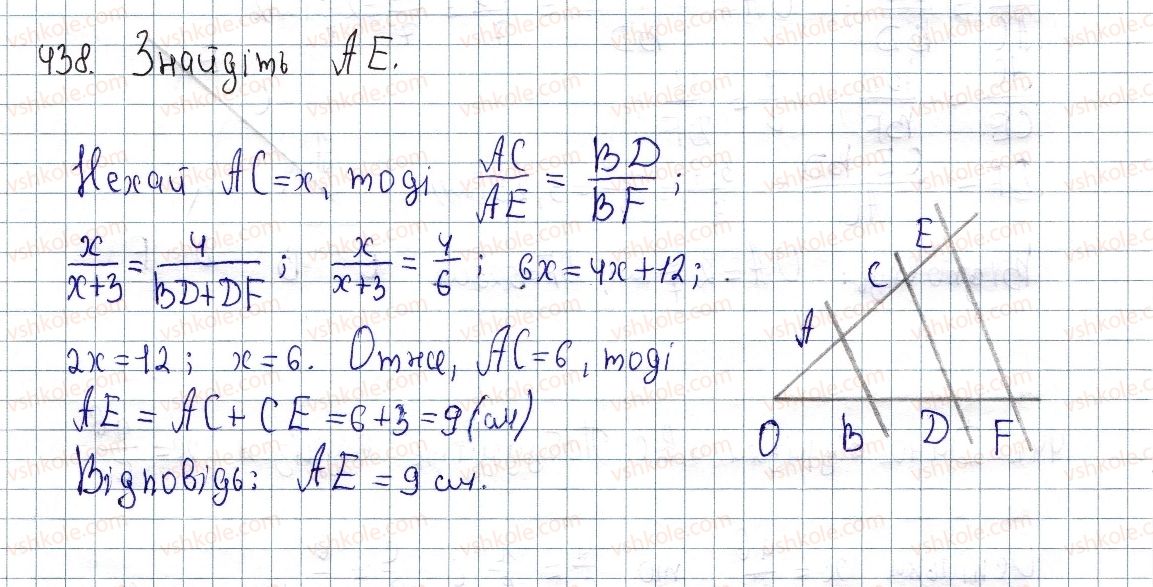 438. Знайдіть AE.
Нехай AC=x, тоді AC/AE = BD/BF;
x/(x+3) = 4/(BD+DF); x/(x+3) = 4/6; 6x=4x+12;
2x=12; x=6. Отже, AC=6, тоді
AE = AC + CE = 6+3 = 9 (см)
Відповідь: AE = 9 см.
E
C
A
O B D F
vshkole.com